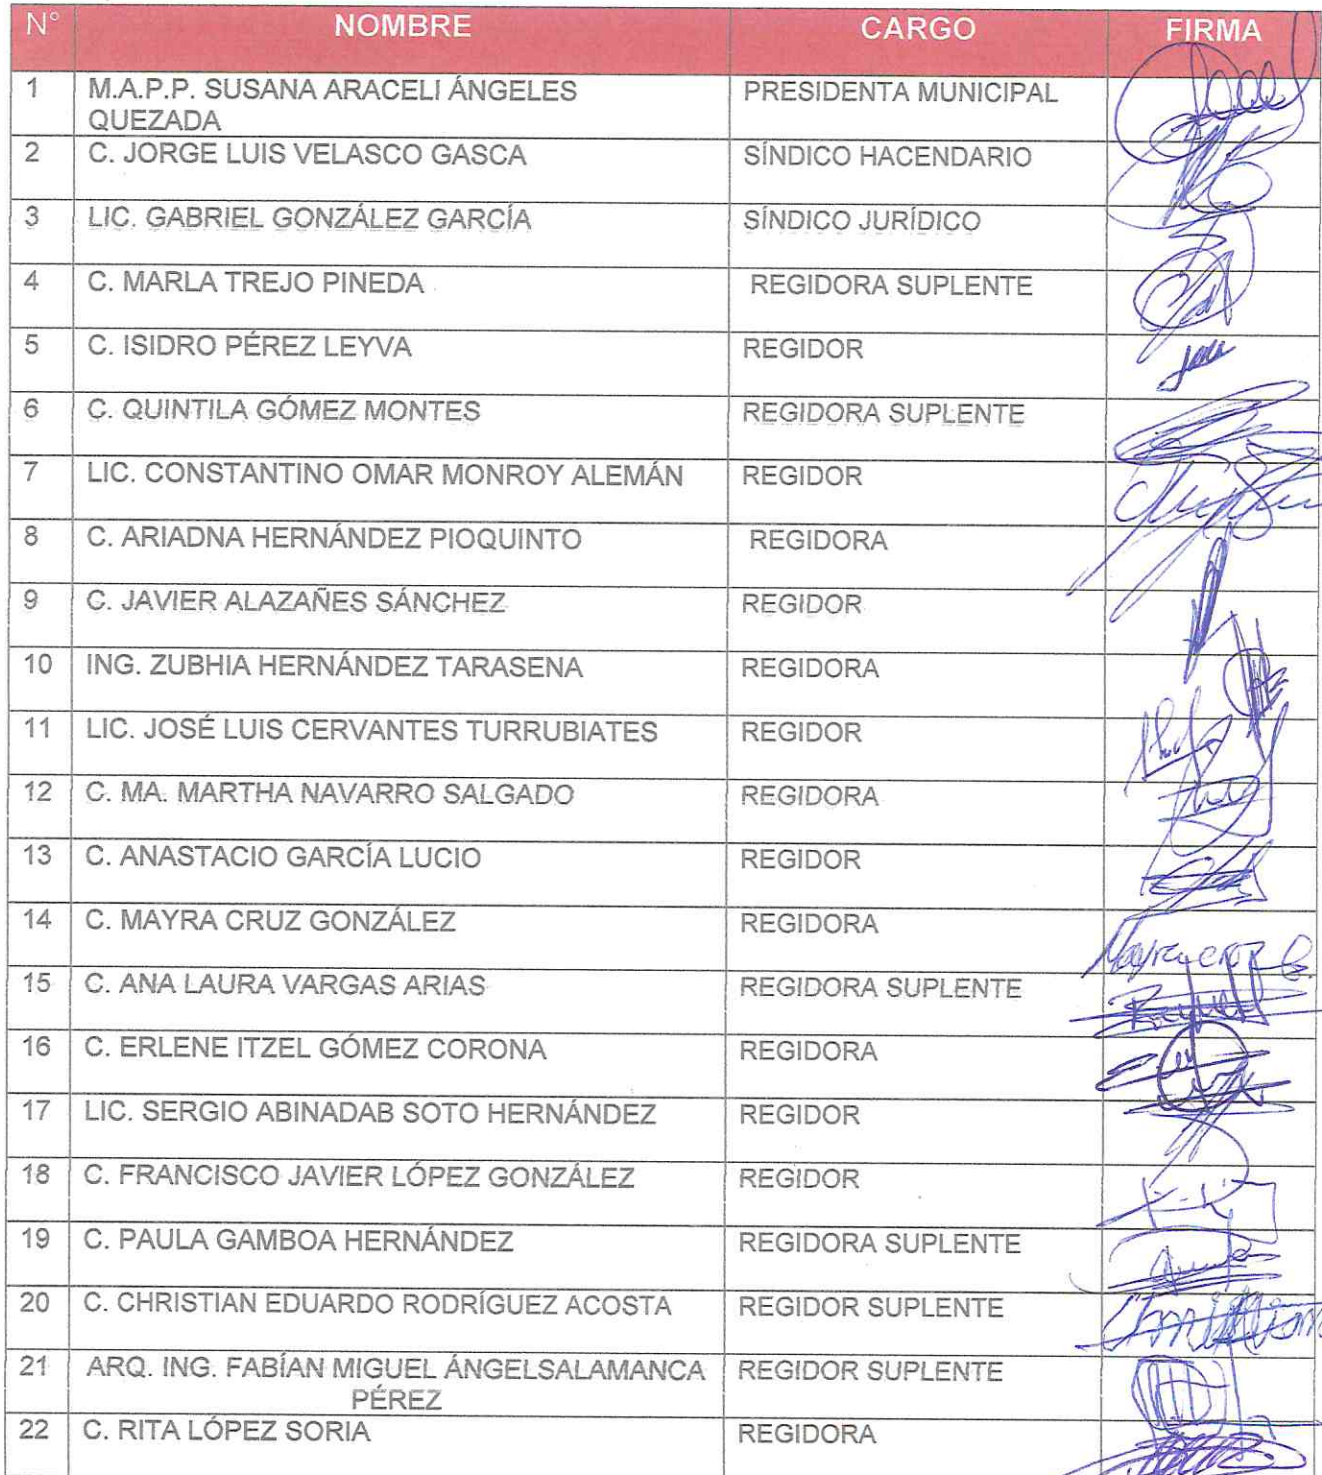 N° NOMBRE CARGO FIRMA
1 M.A.P.P. SUSANA ARACELI ÁNGELES PRESIDENTA MUNICIPAL
QUEZADA
2 C. JORGE LUIS VELASCO GASCA SÍNDICO HACENDARIO
3 LIC. GABRIEL GONZÁLEZ GARCÍA SÍNDICO JURÍDICO
4 C. MARLA TREJO PINEDA REGIDORA SUPLENTE
5 C. ISIDRO PÉREZ LEYVA REGIDOR
6 C. QUINTILA GÓMEZ MONTES REGIDORA SUPLENTE
7 LIC. CONSTANTINO OMAR MONROY ALEMÁN REGIDOR
8 C. ARIADNA HERNÁNDEZ PIOQUINTO REGIDORA
9 C. JAVIER ALAZAÑES SÁNCHEZ REGIDOR
10 ING. ZUBHIA HERNÁNDEZ TARASENA REGIDORA
11 LIC. JOSÉ LUIS CERVANTES TURRUBIATES REGIDOR
12 C. MA. MARTHA NAVARRO SALGADO REGIDORA
13 C. ANASTACIO GARCÍA LUCIO REGIDOR
14 C. MAYRA CRUZ GONZÁLEZ REGIDORA Mayra cruz G.
15 C. ANA LAURA VARGAS ARIAS REGIDORA SUPLENTE
16 C. ERLENE ITZEL GÓMEZ CORONA REGIDORA
17 LIC. SERGIO ABINADAB SOTO HERNÁNDEZ REGIDOR
18 C. FRANCISCO JAVIER LÓPEZ GONZÁLEZ REGIDOR
19 C. PAULA GAMBOA HERNÁNDEZ REGIDORA SUPLENTE
20 C. CHRISTIAN EDUARDO RODRÍGUEZ ACOSTA REGIDOR SUPLENTE
21 ARQ. ING. FABÍAN MIGUEL ÁNGELSALAMANCA REGIDOR SUPLENTE
PÉREZ
22 C. RITA LÓPEZ SORIA REGIDORA